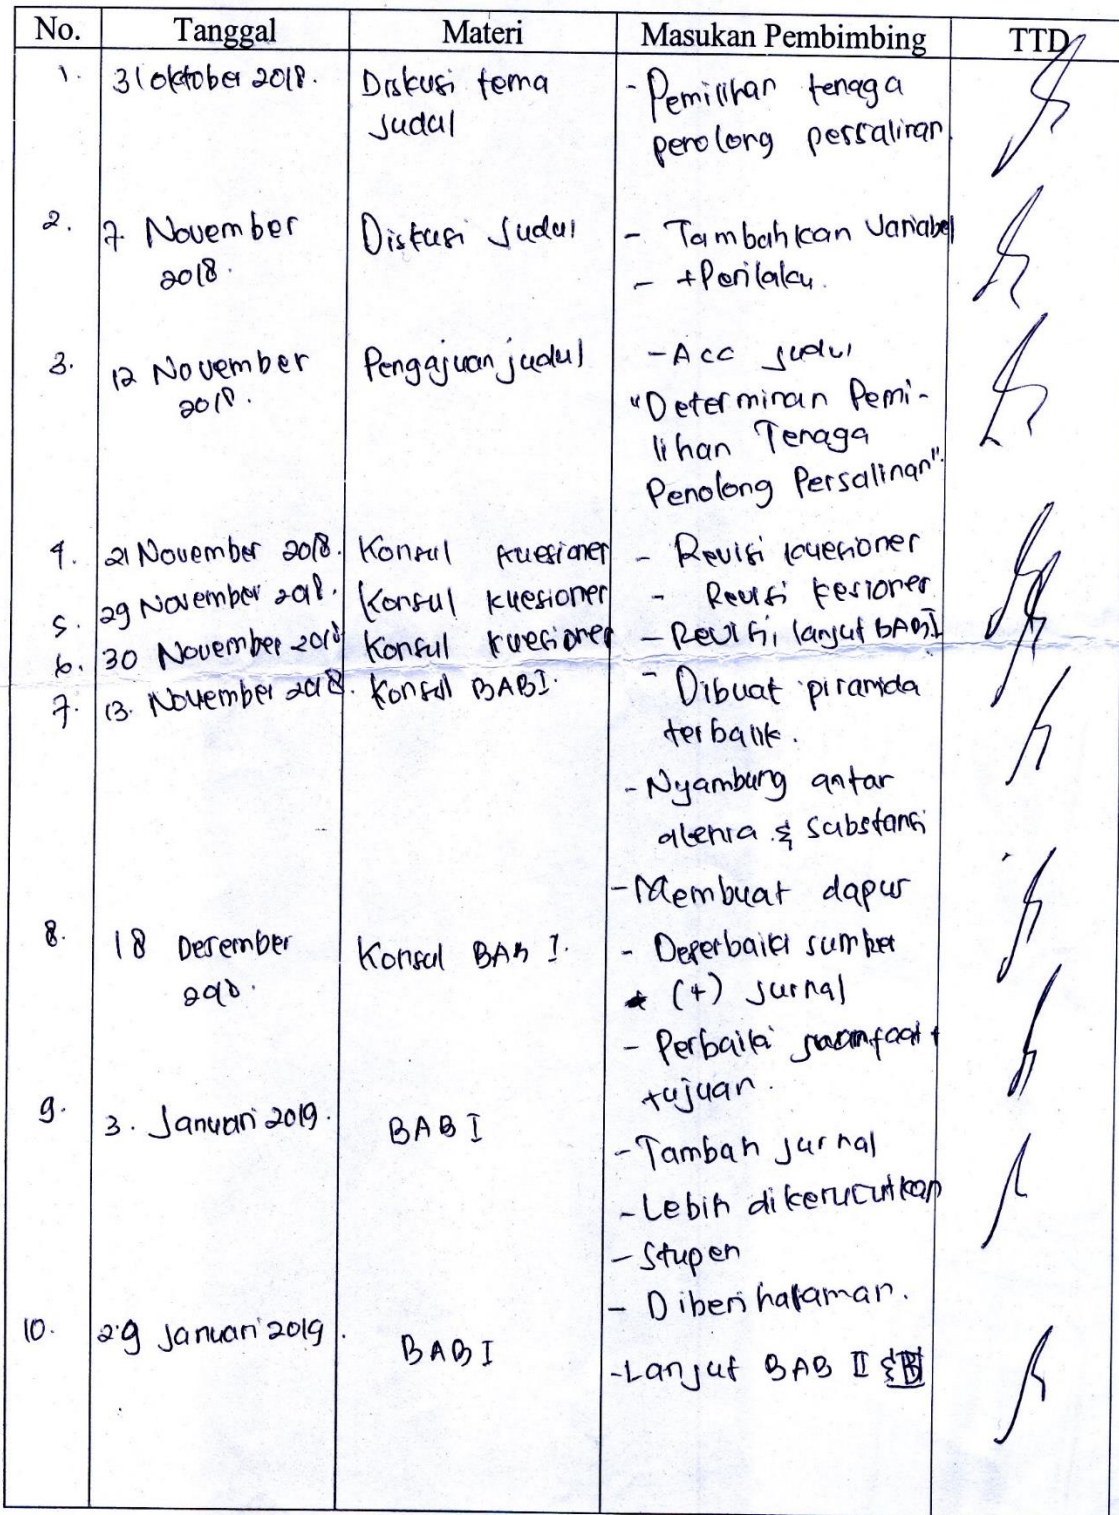 No. Tanggal Materi Masukan Pembimbing TTD
1. 31 Oktober 2018. Diskusi tema - Pemilihan tenaga
judul penolong persalinan
2. 7 November Diskusi Judul - Tambahkan Variabel
2018. - +Perilaku.
3. 12 November Pengajuan judul - Acc judul
2018. "Determinan Pemi-
lihan Tenaga
Penolong Persalinan".
4. 21 November 2018. Konsul kuesioner - Revisi kuesioner
5. 29 November 2018. Konsul kuesioner - Revisi kesioner
6. 30 November 2018 Konsul kuesioner - Revisi, lanjut BAB I
7. 13. November 2018. Konsul BAB I. - Dibuat piramida
terbalik.
- Nyambung antar
alenia & substansi
- Membuat dapus
8. 18 Desember Konsul BAB I. - Deperbaiki sumber
2018. (+) jurnal
- Perbaiki manfaat +
tujuan.
9. 3. Januari 2019. BAB I
- Tambah jurnal
- Lebih dikerucutkan
- Stupen
- Diberi halaman.
10. 29 Januari 2019. BAB I
- Lanjut BAB II &